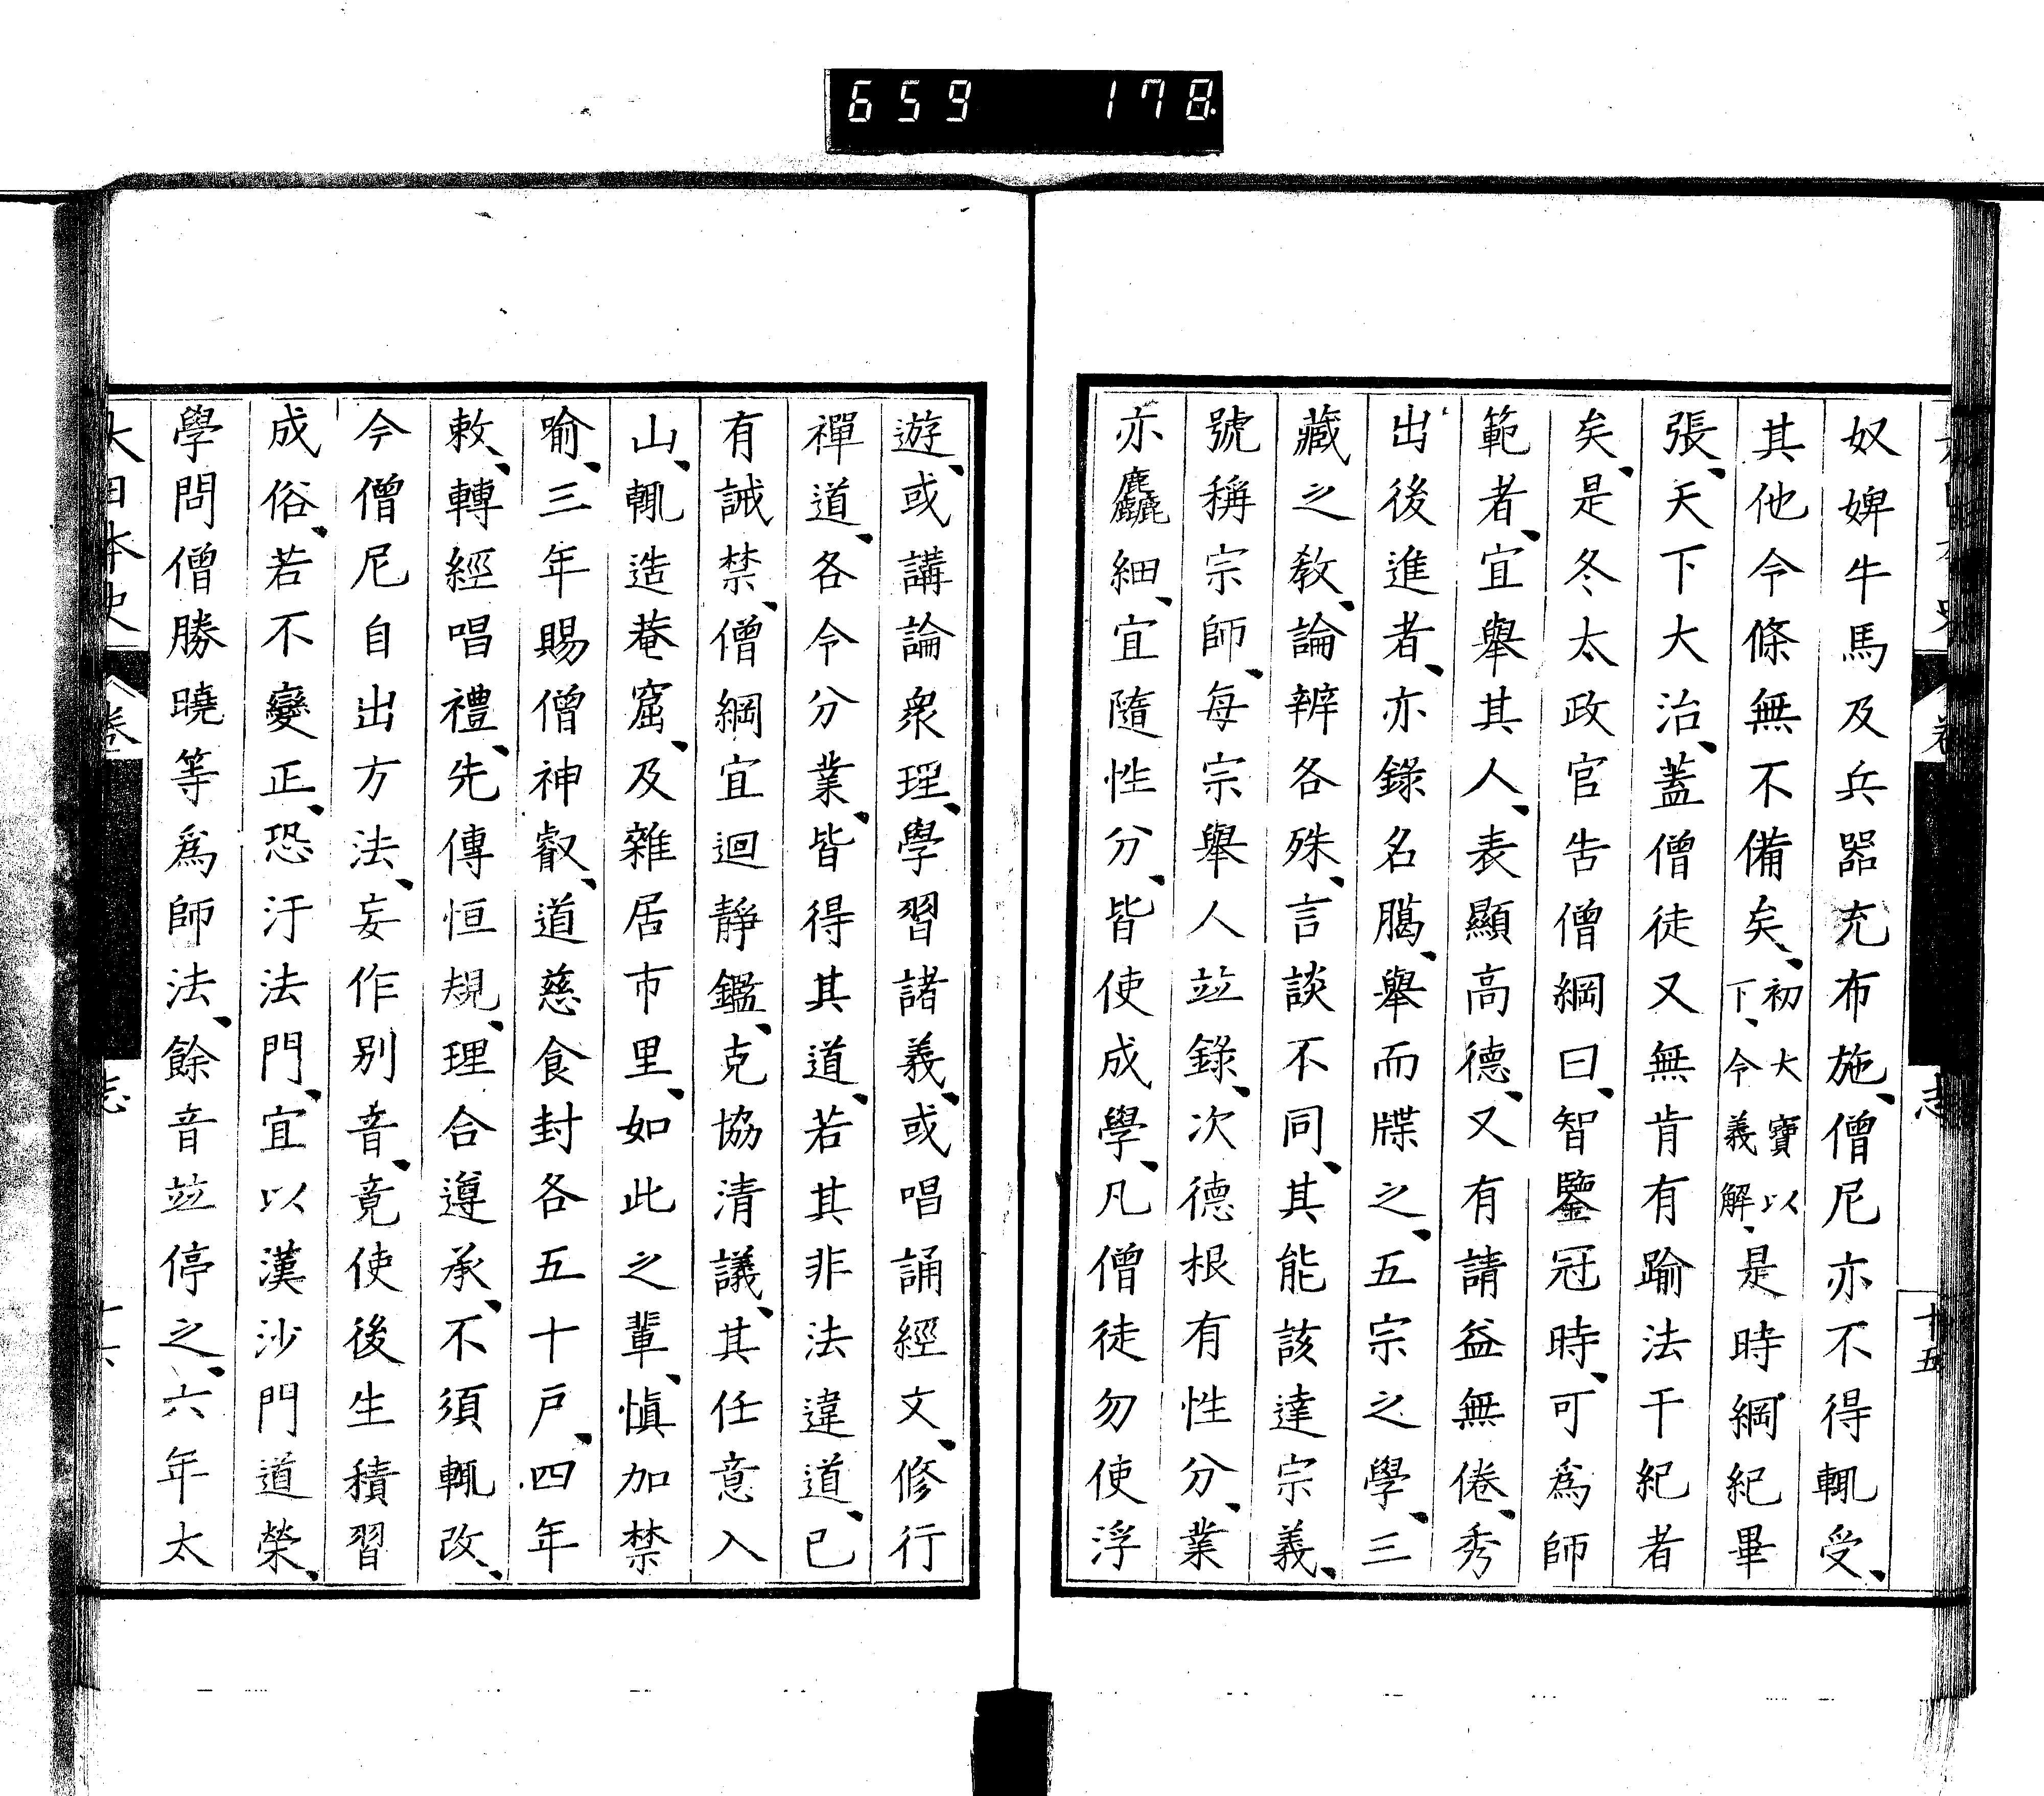 659 178
奴婢牛馬及兵器充布施、僧尼亦不得輒受、
其他令條無不備矣、初大寶以下、令義解、是時綱紀畢
張、天下大治、蓋僧徒又無肯有踰法干紀者
矣、是冬太政官告僧綱曰、智鑒冠時、可爲師
範者、宜舉其人、表顯高德、又有請益無倦、秀
出後進者、亦錄名臈、舉而牒之、五宗之學、三
藏之教、論辨各殊、言談不同、其能該達宗義、
號稱宗師、每宗舉人竝錄、次德根有性分、業
亦麤細、宜隨性分、皆使成學、凡僧徒勿使浮
十五
遊、或講論衆理、學習諸義、或唱誦經文、修行
禪道、各令分業、皆得其道、若其非法違道、已
有誡禁、僧綱宜迴靜鑑、克協清議、其任意入
山、輒造菴窟、及雜居市里、如此之輩、愼加禁
喻、三年賜僧神叡、道慈食封各五十戶、四年
敕、轉經唱禮、先傳恒規、理合遵承、不須輒改、
今僧尼自出方法、妄作別音、竟使後生積習
成俗、若不變正、恐汙法門、宜以漢沙門道榮、
學問僧勝曉等爲師法、餘音竝停之、六年太
大日本史 卷 志